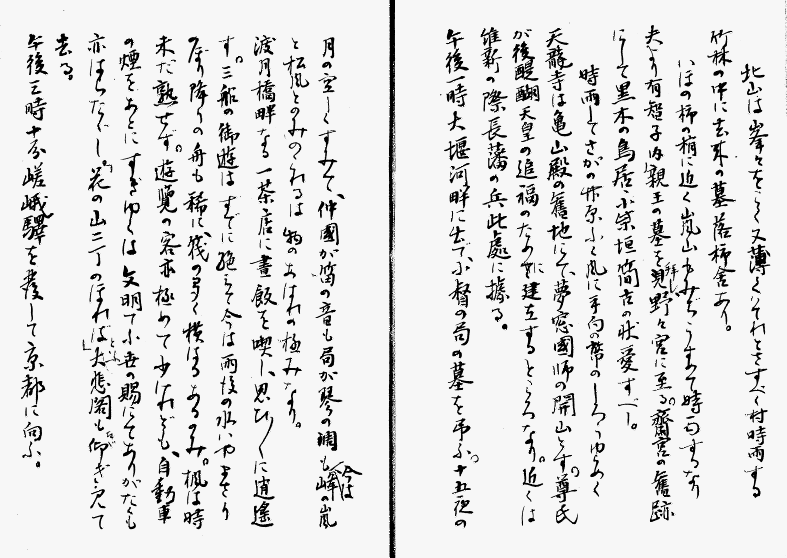 北山は峯々をこく又薄くいそれともすべく村時雨する
竹林の中に去来の墓落柿舎あり。
いほの柿の梢に近く嵐山もみぢうすて時雨するなり
夫より有智子内親王の墓を見拝し野々宮に至る。齋宮の舊跡
にして黒木の鳥居小柴垣簡古の状愛すべし。
時雨してさがの竹原ふく風に手向の幣のしろうゆらく
天龍寺は亀山殿の舊地にて夢窓國師の開山とす。尊氏
が後醍醐天皇の追福のために建立するところなり。近くは
維新の際長藩の兵此處に據る。
午後一時大堰河畔に出で小督の局の墓を弔ふ。十五夜の
月の空しくすみて、仲國が笛の音も局が琴の調も今は峰の嵐
と松風とのみのこれるは物のあはれの極みなり。
渡月橋畔なる一茶店に晝飯を喫し思ひ〳〵に逍遙
す。三船の御遊はすでに絶えて今は雨後の水いやまさり
のぼり降りの舟も稀に筏の多く横はるあるのみ。楓は時
未だ熟せず。遊覧の客亦極めて少けれども、自動車
の煙をあとにすぎゆくは文明て小世の賜にてありがたくも
亦はらだゝし。「花の山二丁のぼれば」とふ大悲閣も仰ぎ見て
去る。
午後三時十分嵯峨驛を發して京都に向ふ。